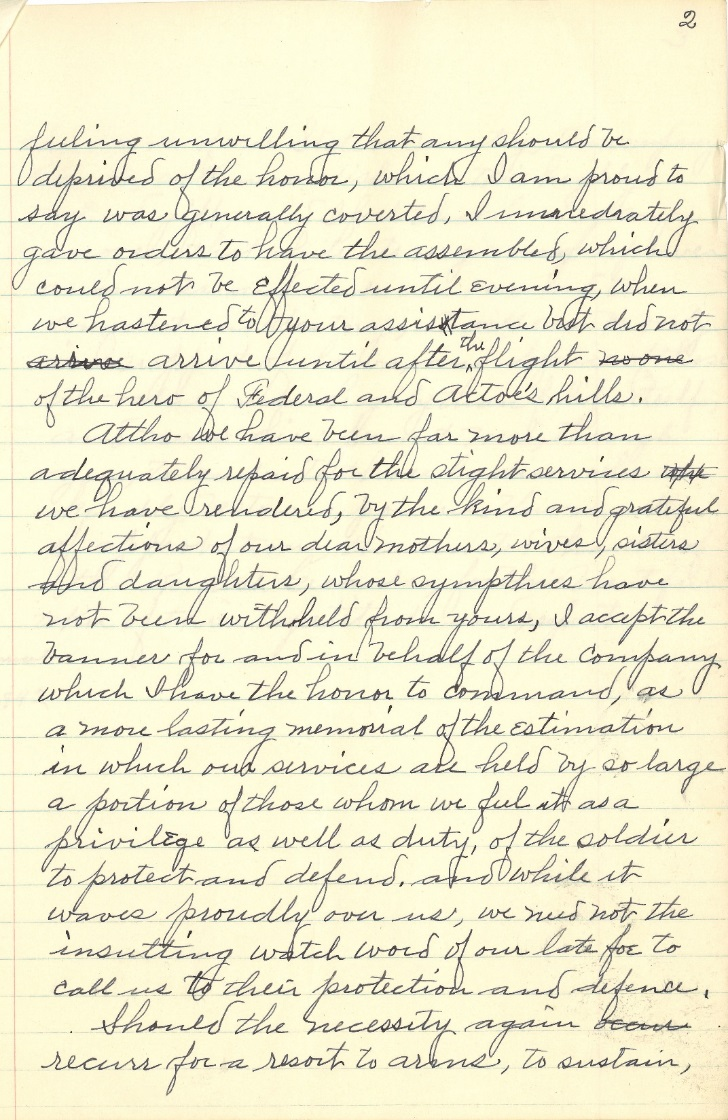 2
feeling unwilling that any should be
deprived of the honor, which I am proud to
say was generally coverted, I immediately
gave orders to have the assembled, which
could not be effected until evening, when
we hastened to your assistance but did not
arrive arrive until after the flight no one
of the hero of Federal and Actoe's hills.
Altho we have been far more than
adequately repaid for the slight services
we have rendered, by the kind and grateful
affections of our dear mothers, wives, sisters
and daughters, whose sympthies have
not been withheld from yours, I accept the
banner for and in behalf of the company
which I have the honor to command, as
a more lasting memorial of the estimation
in which our services are held by so large
a portion of those whom we feel it as a
privilege as well as duty, of the soldier
to protect and defend. and while it
waves proudly over us, we need not the
insulting watch word of our late foe to
call us to their protection and defence.
Should the necessity again occur
recurr for a resort to arms, to sustain,